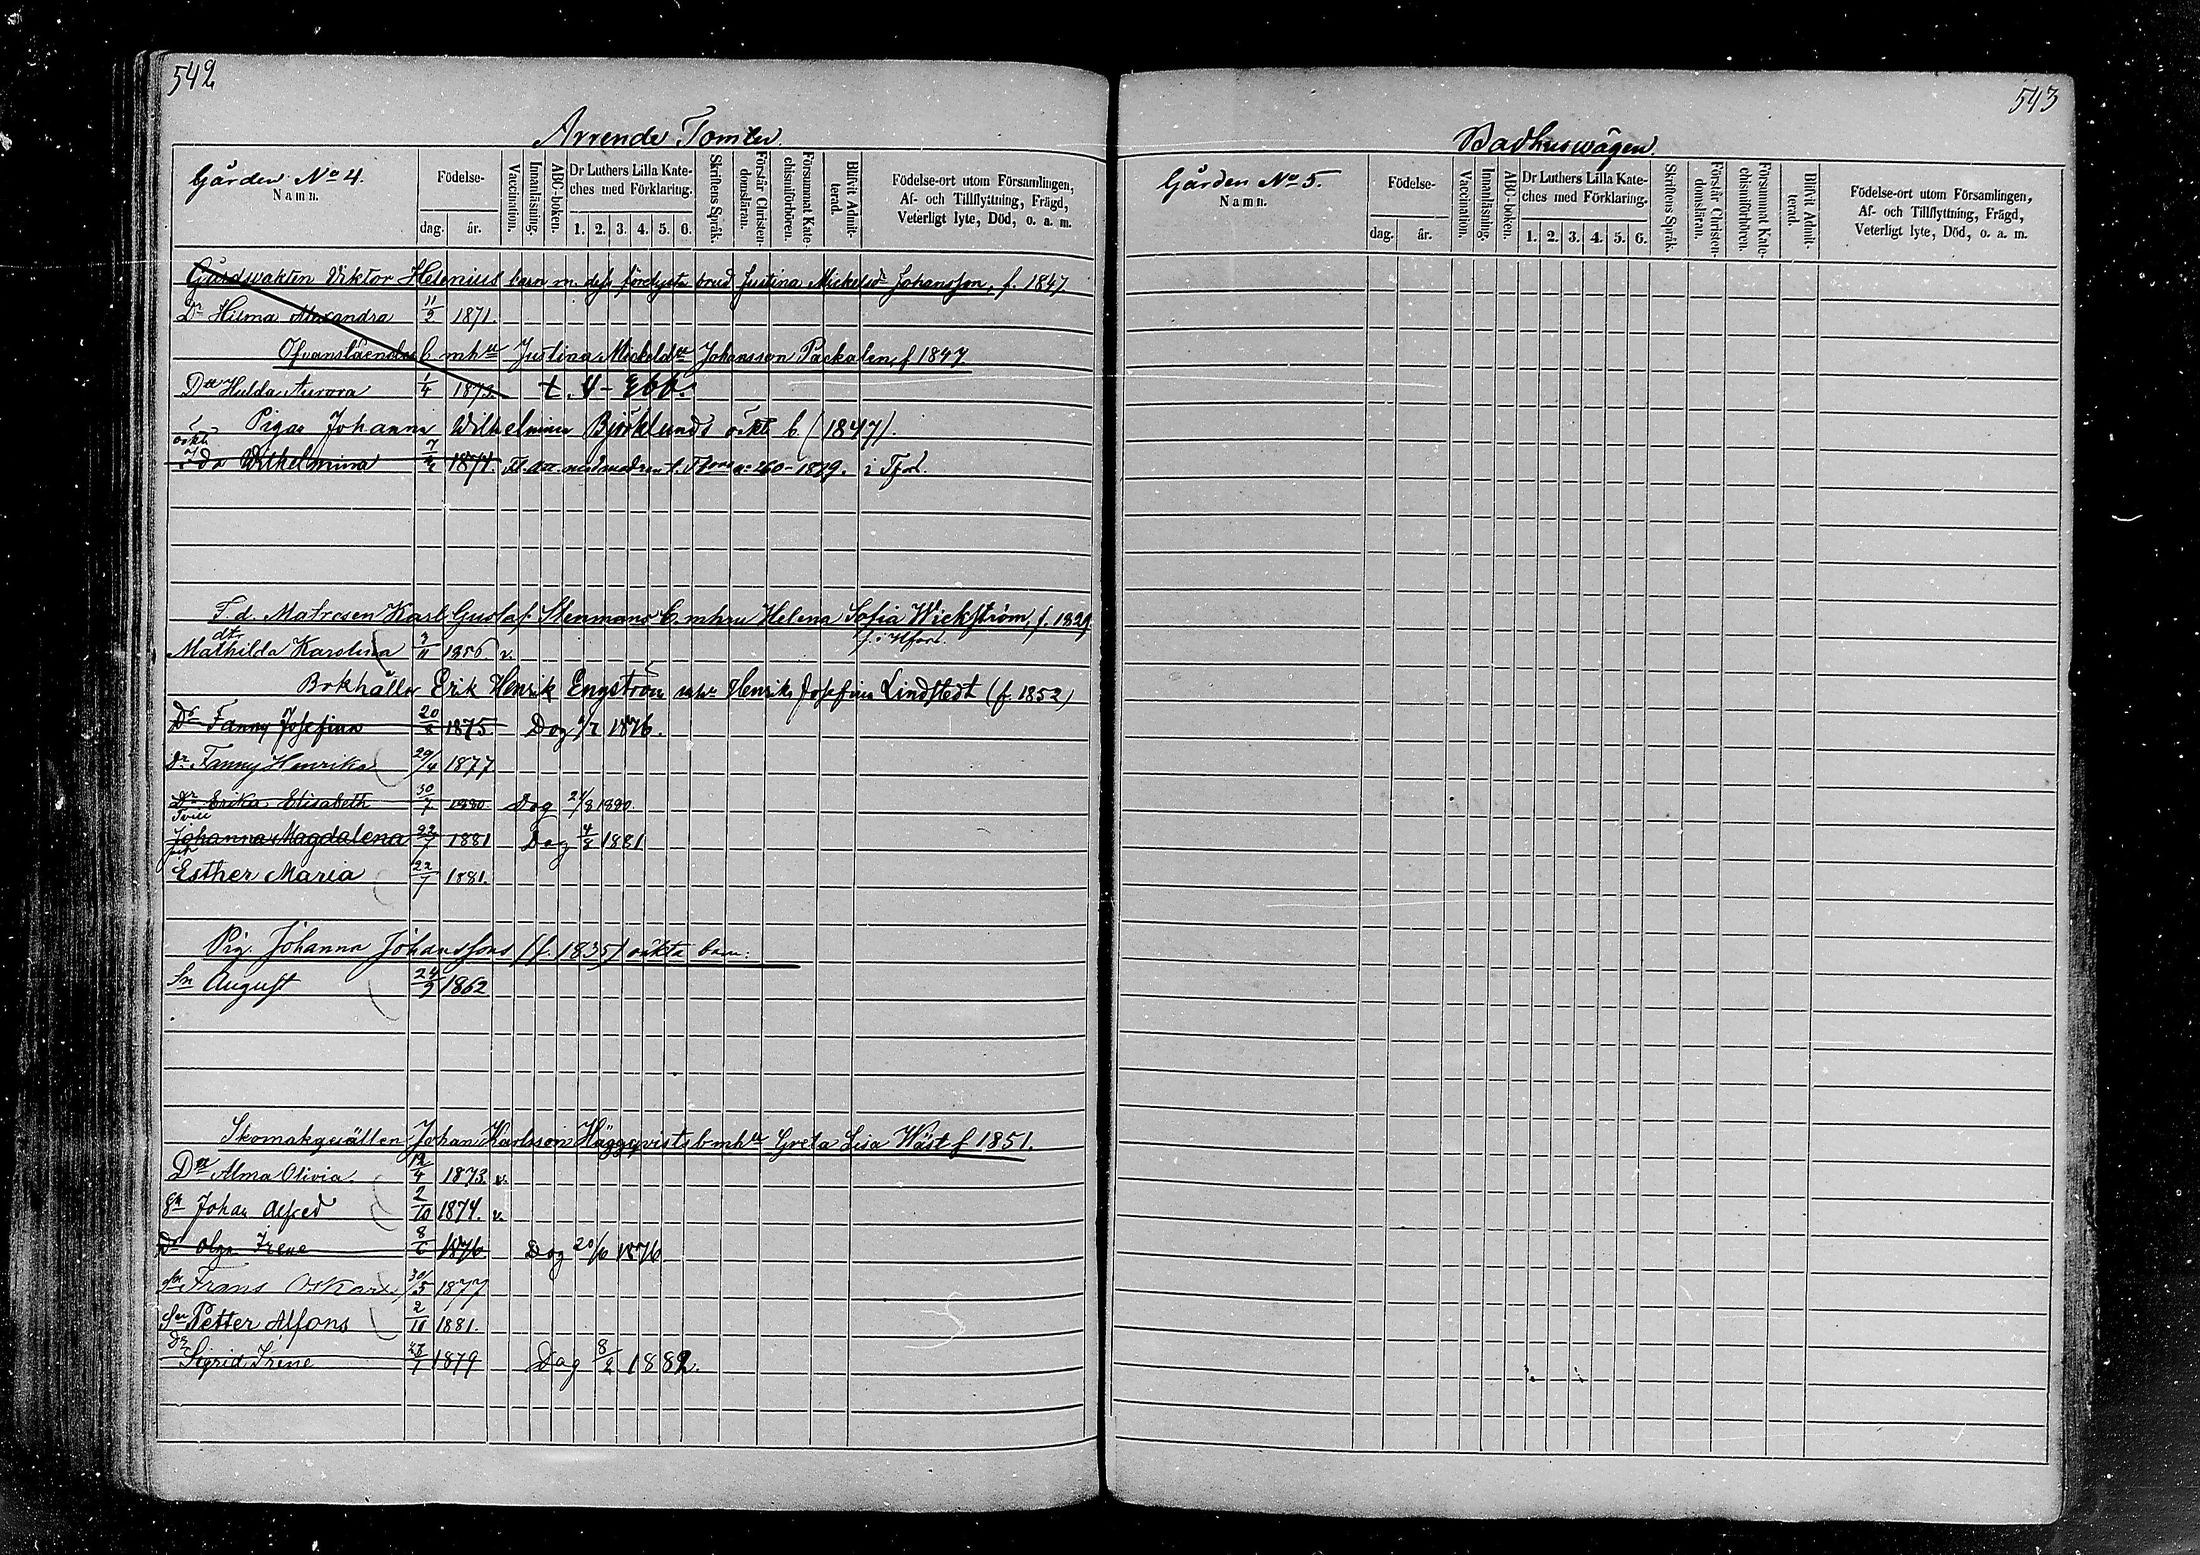 542
Arrende Tomter.
Gården No 4.
Namn.
Födelse-
dag.
år.
Vaccination.
Innanläsning.
ABC-boken.
Dr Luthers Lilla Kate-
ches med Förklaring.
1. 2. 3. 4. 5. 6.
Skriftens Språk.
Förstår Christen-
domsläran.
Försummat Kate-
chismiförhören.
Blifvit Admit-
terad.
Födelse-ort utom Församlingen,
Af- och Tillflyttning, Frägd,
Veterligt lyte, Död, o. a. m.
Gårdwakten Viktor Helenius barn m. dess förelofvade brud Justina Mickelsdr Johansson, f. 1847
Dr Hilma Alexandra 11/2 1871.
Ofvanståendes b. mhu Justina Mickelsdr Johansson Packalen, f 1847
Dtr Hulda Aurora 1/4 1873. t. 4 - 266.
Pigan Johanna Wilhelmina Björklunds oäkt. b. (1847).
oäkt.
Ida Wilhelmina 7/2 1871. 260 - 1879. i Tfors.
F. d. Matrosen Karl Gustaf Stenmans b. mhru Helena Sofia Wickström, f. 1829
dtr f. i Hfors.
Mathilda Karolina 3/11 1856. v.
Bokhållar Erik Henrik Engström mhu Henrika Josefina Lindstedt (f. 1852)
Dr Fanny Josefina 20/8 1875 Dog 1/7 1876.
Dr Fanny Henrika 29/4 1877
Dr Erika Elisabeth 30/7 1880 Dog 21/8 1880.
Tvill
Johanna Magdalena 22/7 1881 Dog 4/8 1881
och
Esther Maria 22/7 1881.
Pig. Johanna Johanssons (f. 1835) oäkta barn:
Sn August 24/9 1862
Skomakgesällen Johan Karlsson Häggqvists b mhu Greta Lisa Wäst f 1851.
Dtr Alma Olivia 12/4 1873. v.
Sn Johan Alfred 2/10 1874. v.
Dr Olga Irene 8/6 1876 Dog 20/6 1876
Sn Frans Oskar 30/5 1877
Sn Petter Alfons 2/11 1881.
Dr Sigrid Irene 27/7 1879 Dog 8/2 1882.
543
Badhuswägen.
Gården No 5.
Namn.
Födelse-
dag.
år.
Vaccination.
Innanläsning.
ABC-boken.
Dr Luthers Lilla Kate-
ches med Förklaring.
1. 2. 3. 4. 5. 6.
Skriftens Språk.
Förstår Christen-
domsläran.
Försummat Kate-
chismiförhören.
Blifvit Admit-
terad.
Födelse-ort utom Församlingen,
Af- och Tillflyttning, Frägd,
Veterligt lyte, Död, o. a. m.